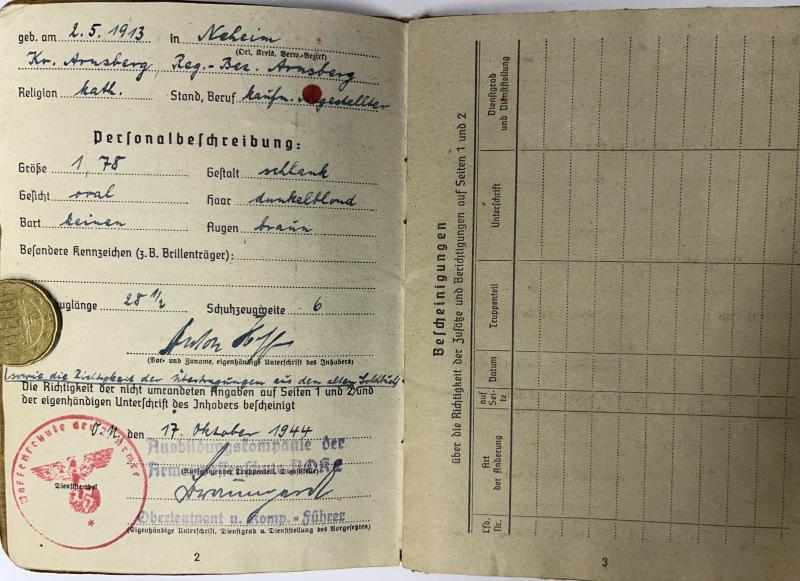 geb. am 2.5.1913 in Neheim
(Ort, Kreis, Verw.-Bezirk)
Kr. Arnsberg, Reg.-Bez. Arnsberg
Religion kath. Stand, Beruf kaufm. Angestellter
Personalbeschreibung:
Größe 1,78 Gestalt schlank
Gesicht oval Haar dunkelblond
Bart keinen Augen braun
Besondere Kennzeichen (z.B. Brillenträger):
uglänge 28 1/2 Schuhzeugweite 6
Anton
(Vor- und Zuname, eigenhändige Unterschrift des Inhabers)
(sowie die Richtigkeit der Übertragungen aus dem alten Soldbuch)
Die Richtigkeit der nicht umrandeten Angaben auf Seiten 1 und 2 und
der eigenhändigen Unterschrift des Inhabers bescheinigt
O.U., den 17. Oktober 1944
Ausbildungskompanie der
(Ausfertigender Truppenteil, Dienststelle)
Waffenschule der
Dienststempel
Oberleutnant u. Komp.-Führer
(Eigenhändige Unterschrift, Dienstgrad u. Dienststellung des Vorgesetzten)
2
Bescheinigungen
über die Richtigkeit der Zusätze und Berichtigungen auf Seiten 1 und 2
Lfd. Nr.
Art der Änderung
auf Seite
Datum
Truppenteil
Unterschrift
Dienstgrad und Dienststellung
3